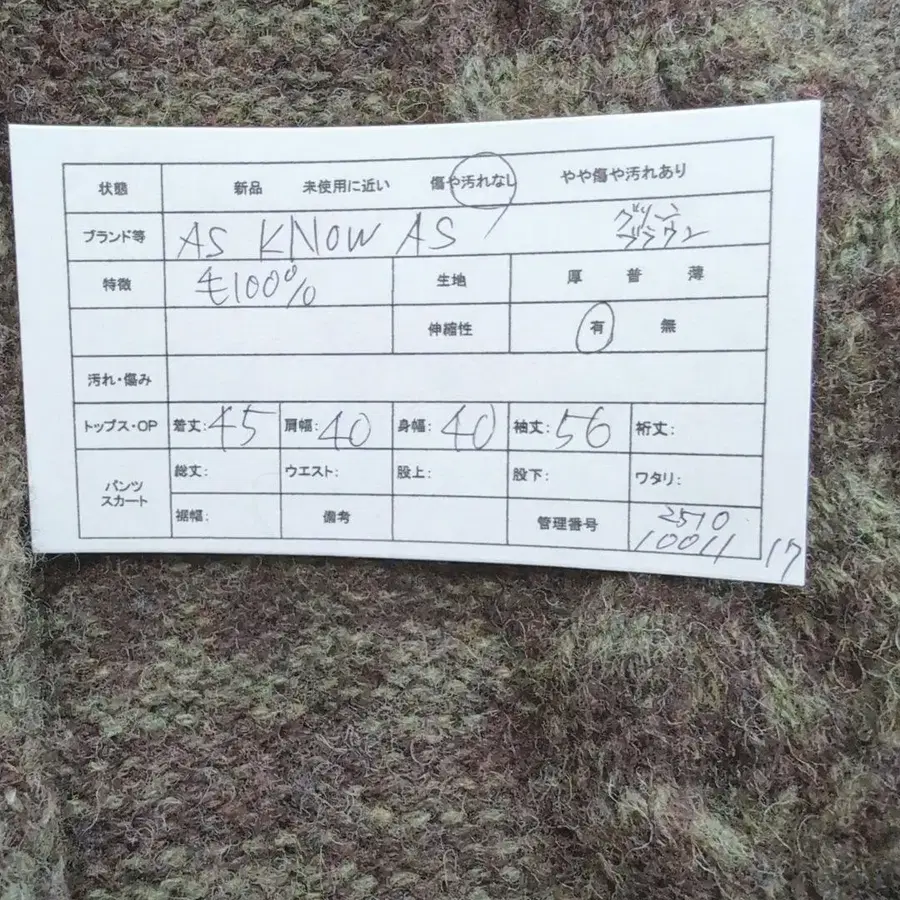 状態 新品 未使用に近い 傷や汚れなし やや傷や汚れあり
ブランド等 AS KNOW AS グリーン ブラウン
特徴 毛100% 生地 厚 普 薄
伸縮性 有 無
汚れ・傷み
トップス・OP 着丈:45 肩幅:40 身幅:40 袖丈:56 裄丈:
パンツ スカート 総丈: ウエスト: 股上: 股下: ワタリ:
裾幅: 備考 管理番号 2510
10011 17